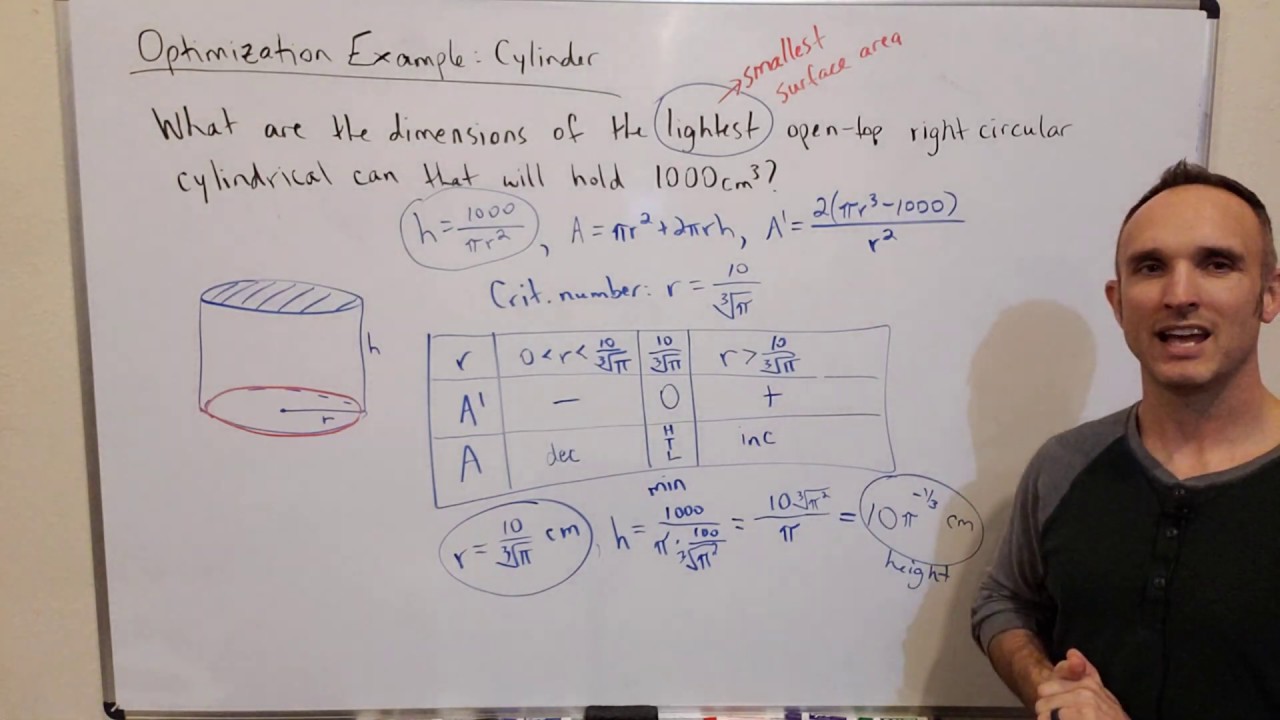 Optimization Example: Cylinder
→smallest
surface area
What are the dimensions of the lightest open-top right circular
cylindrical can that will hold 1000cm³?
h = 1000/πr², A = πr²+2πrh, A' = 2(πr³-1000)/r²
Crit. number: r = 10/∛π
h
r
r 0<r<10/∛π 10/∛π r>10/∛π
A' − 0 +
A dec HTL inc
min
r = 10/∛π cm, h = 1000/(π·100/∛π²) = 10∛π²/π = 10π^(-1/3) cm
height